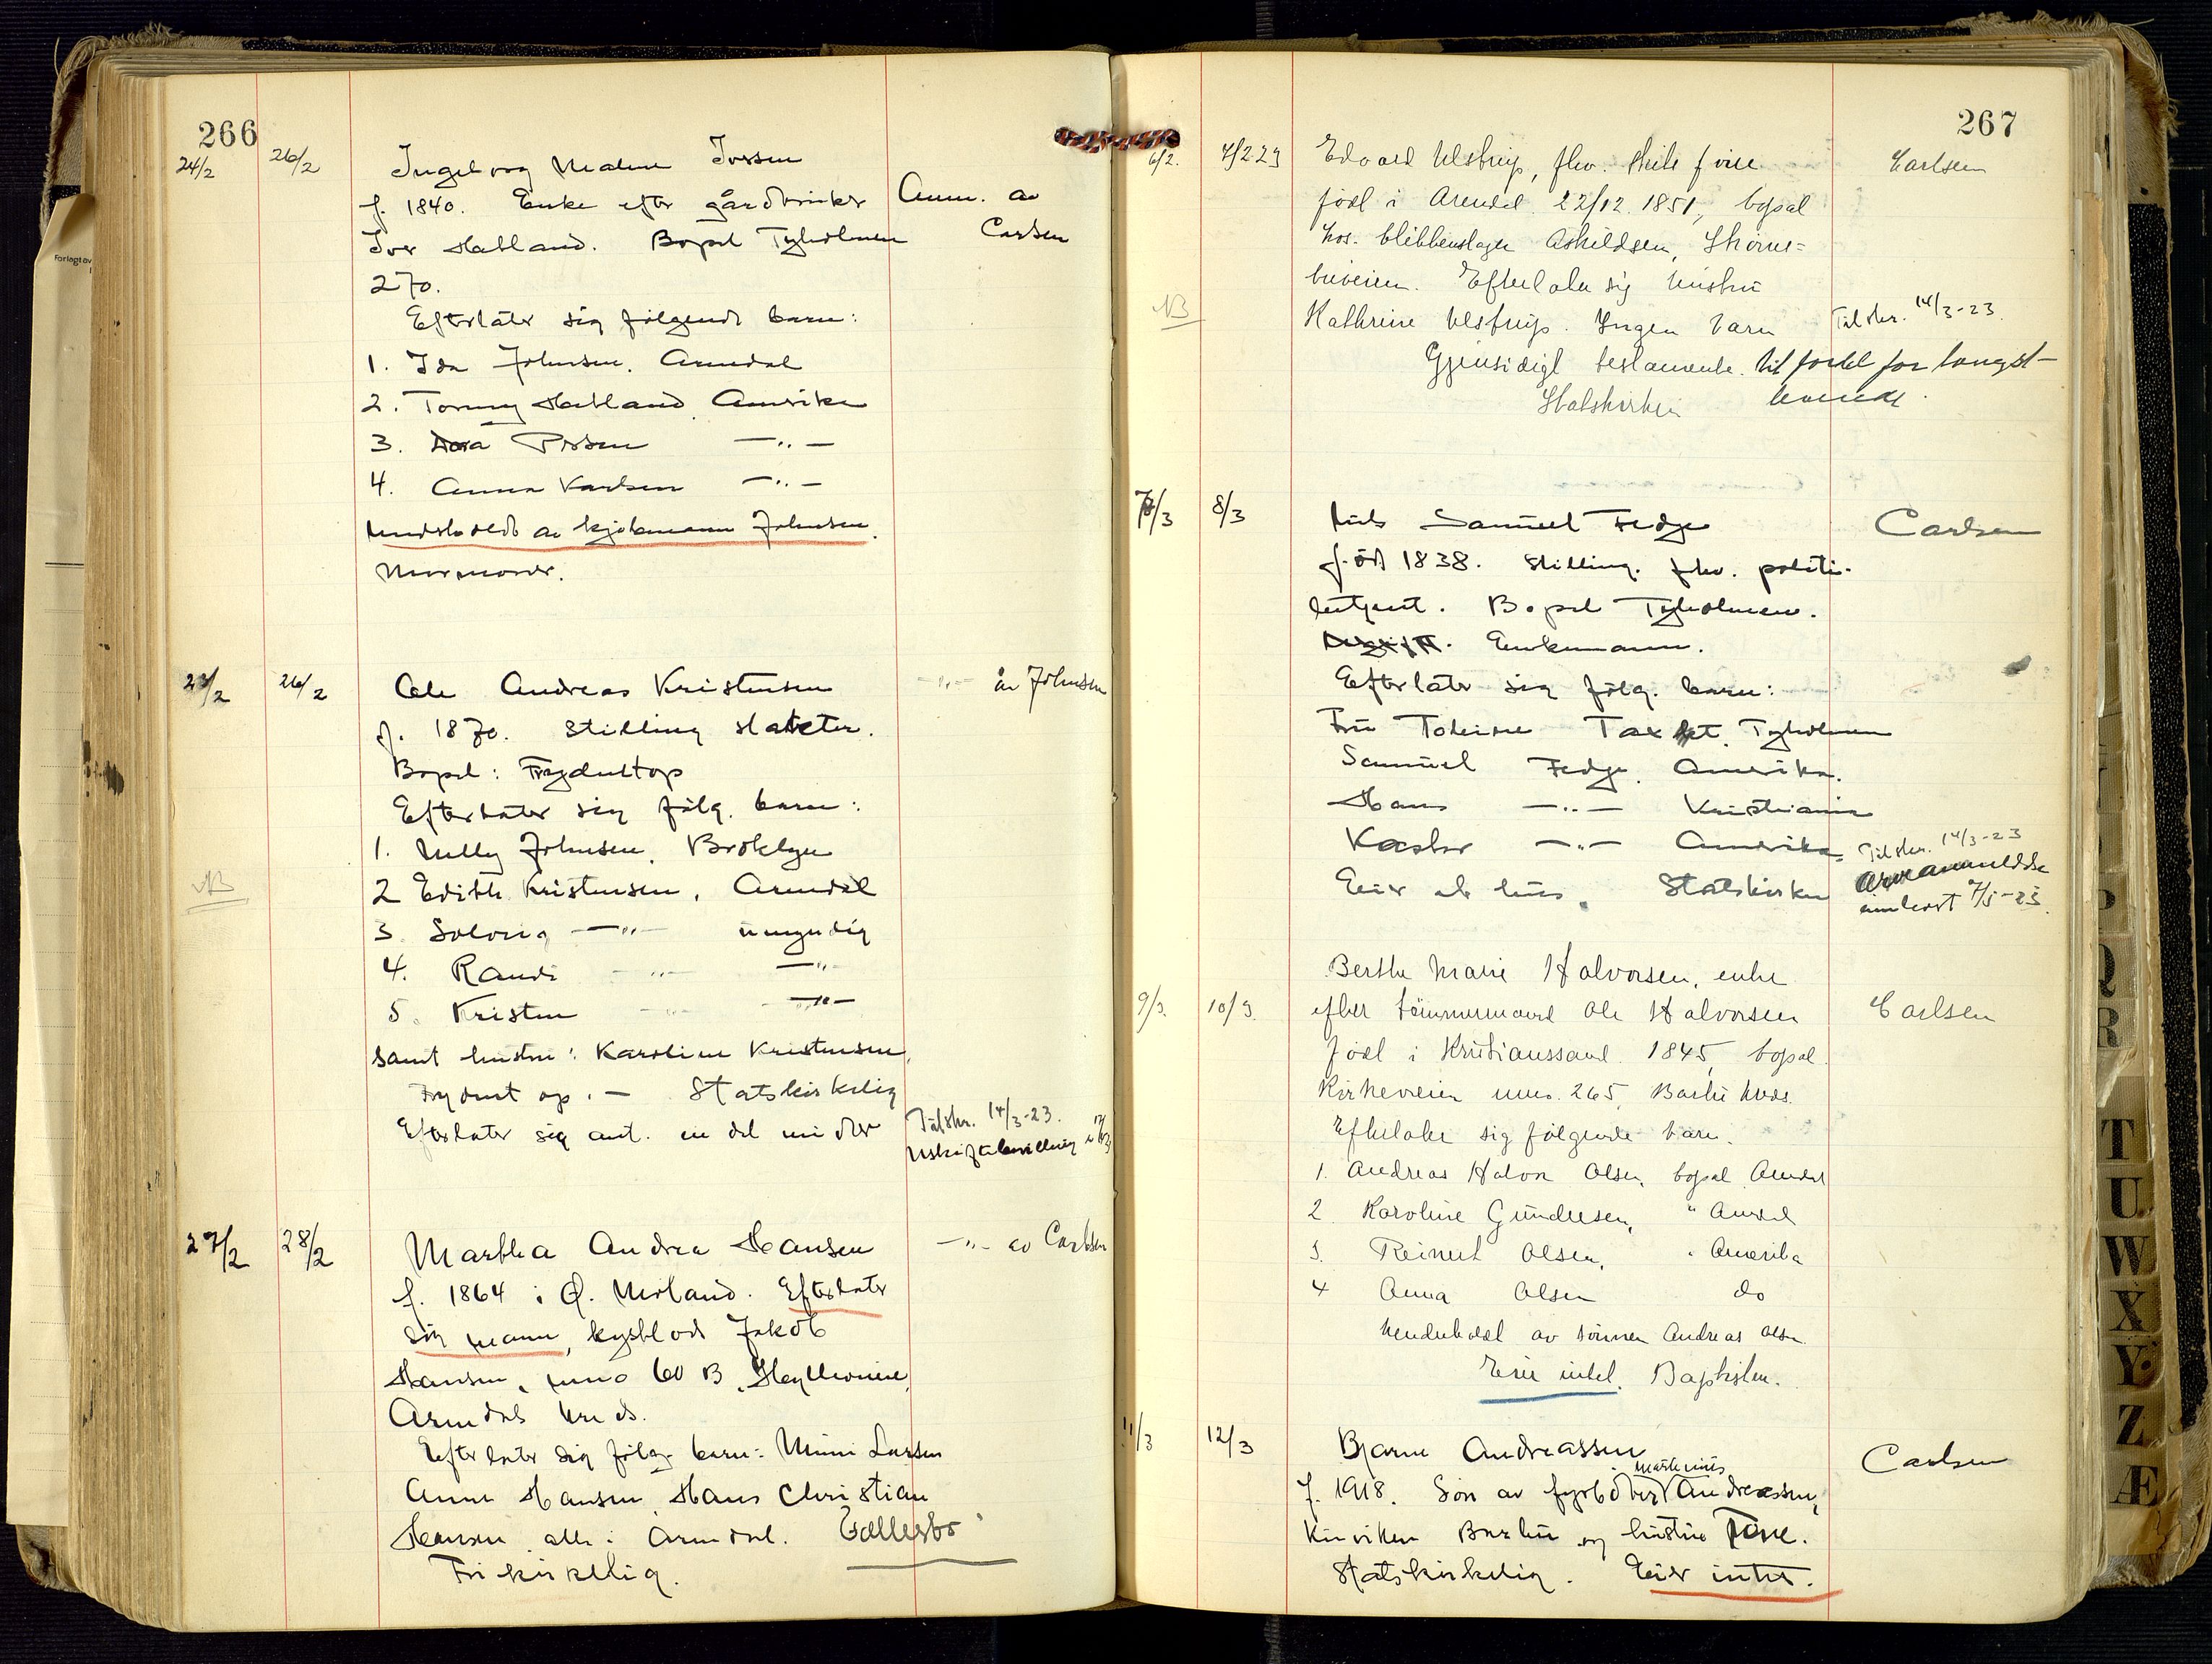 266
24/2 26/2 Ingeborg Malene Iversen
f. 1840. Enke efter gårdbruker Anm. av
Iver Hetland. Bopel Tyholmen Carlsen
270.
Efterlater sig følgende barn:
1. Ida Johnsen. Arendal
2. Tommy Hetland Amerika
3. Dora —"—
4. Anna Karlsen —"—
Underholdt av kjøbmann Johnsen.
Mormoner.
23/2 26/2 Ole Andreas Kristensen —"— av Johnsen
f. 1870. Stilling slakter.
Bopel: Frydentop
Efterlater sig følg. barn:
1. Nelly Johnsen, Broklyn
NB
2 Edith Kristensen, Arendal
3. Solveig —"— umyndig
4. Randi —"— —"—
5. Kristen —"— —"—
samt hustru: Karoline Kristensen,
Frydentop. — Statskirkelig
Efterlater sig ant. en del midler
Tilskr. 14/3-23.
Uskiftebevilling
27/2 28/2 Martha Andrea Hansen —"— av Carlsen
f. 1864 i Ø. Moland. Efterlater
sig mann, kystlods Jakob
Hansen, 60 B,
Arendal krets.
Efterlater sig følg. barn: Mimi Larsen
Anna Hansen, Hans Christian
Hansen alle i Arendal.
Frikirkelig.
267
6/2. 7/2 23 Edvard Ulstrup, fhv. Carlsen
født i Arendal 22/12. 1851, bopæl
hos. blikkenslager Askildsen,
veien. Efterlater sig hustru
NB
Kathrine Ulstrup. Ingen barn Tilskr. 14/3-23.
Gjensidigt testamente til fordel for længst-
Statskirken levende.
7/3 8/3 Niels Samuel Fedge Carlsen
Født 1838. Stilling. fhv. politi-
betjent. Bopel Tyholmen.
Enkemann.
Efterlater sig følg. barn:
Fru Tomine Tyholmen
Samuel Fedge, Amerika.
Hans —"— Kristiania
—"— Amerika. Tilskr. 14/3-23
Eier et hus. Statskirken Arveanmeldelse
innlevert 7/5-23.
Berthe Marie Halvorsen, enke
9/3. 10/3. efter tømmermand Ole Halvorsen Carlsen
født i Kristianssand 1845, bopæl
Kirkeveien 265, Barbu kreds.
Efterlater sig følgende barn.
1. Andreas Halvor Olsen, bopæl Arendal
2 Karoline Gundersen, " Arendal
3. Reinert Olsen, " Amerika
4 Anna Olsen do
Underholdt av sønnen Andreas Olsen
Eier intet. Baptisten.
11/3 12/3 Bjarne Andreassen Carlsen
Martinius
f. 1918. Søn av fyrbøter Andreassen,
Kirviken Barbu og hustru Tone.
Statskirkelig. Eier intet.
T
U
W
X
Y
Z
Æ